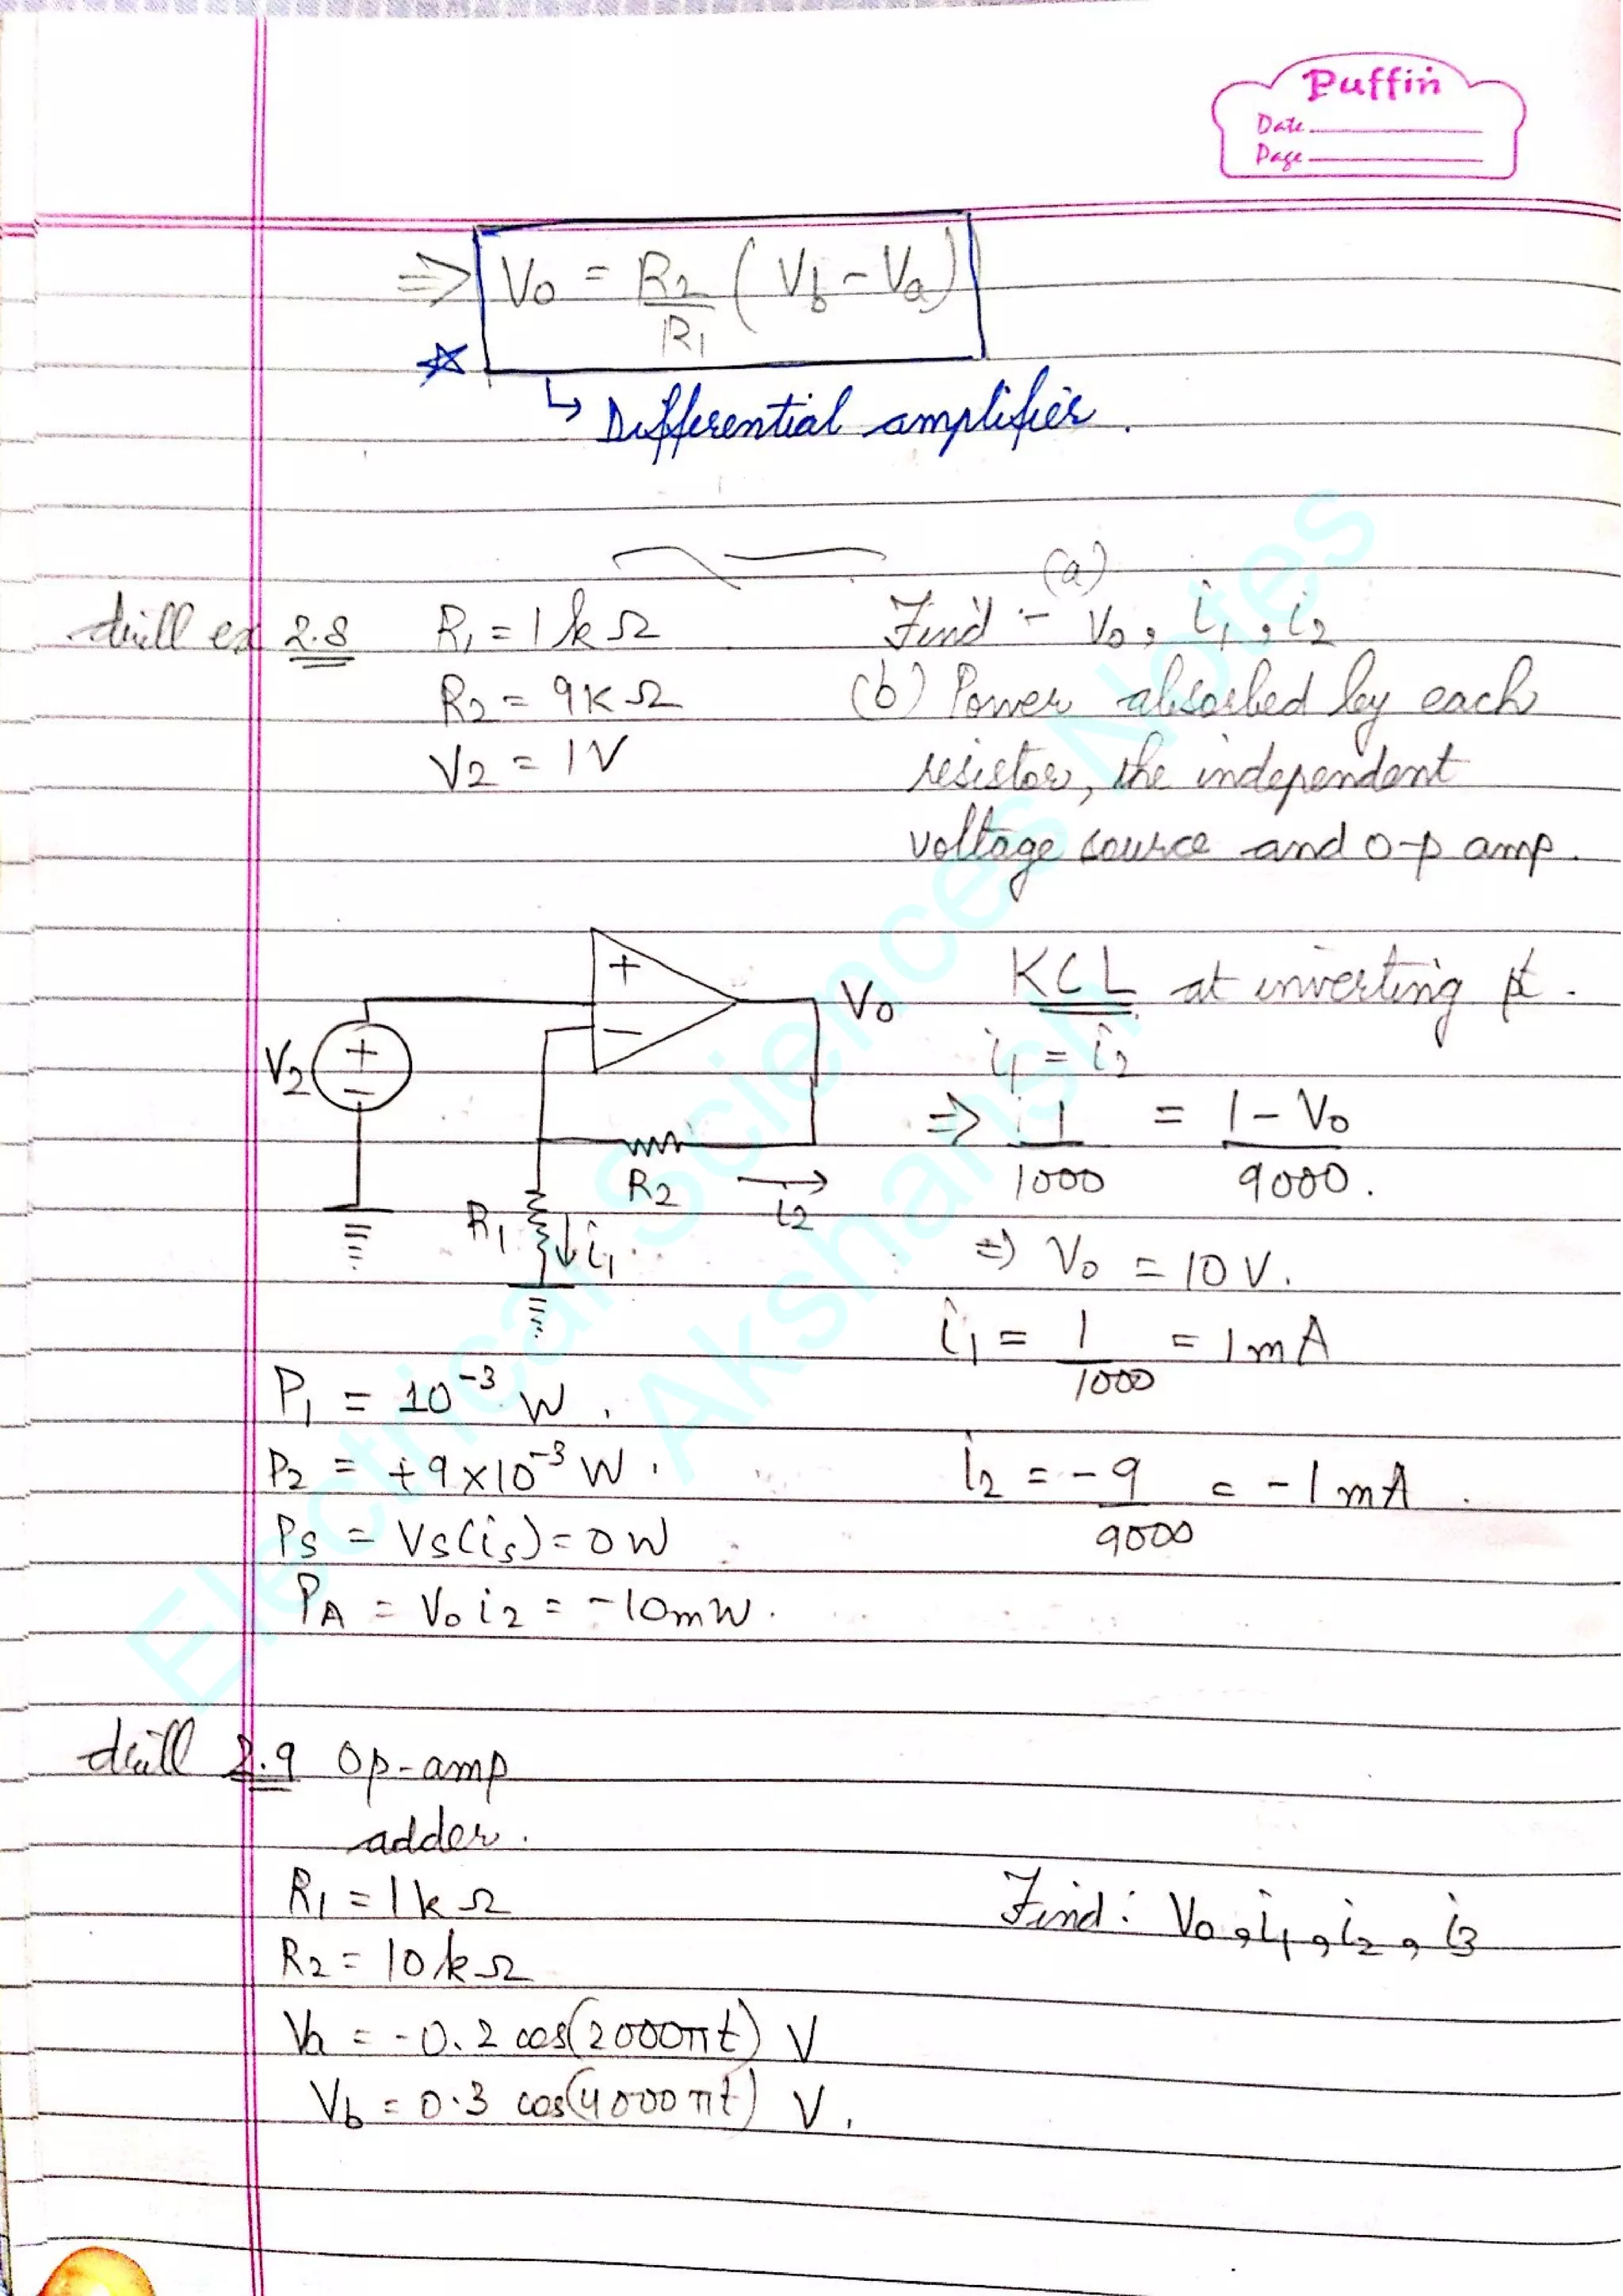 Puffin
Date
Page
⇒ V0 = R2/R1 (Vb - Va)
☆
↳ Differential amplifier.
drill ex 2.8
R1 = 1kΩ
R2 = 9KΩ
V2 = 1V
(a)
Find :- V0, i1, i2
(b) Power absorbed by each
resistor, the independent
voltage source and o-p amp.
+
-
V0
V2
+
-
R2
i2
R1
i1
KCL at inverting pt.
i1 = i2
⇒ 1/1000 = 1 - V0/9000.
⇒ V0 = 10 V.
i1 = 1/1000 = 1mA
i2 = -9/9000 = -1mA.
P1 = 10^-3 W.
P2 = +9×10^-3 W.
Ps = Vs(is) = 0W
PA = V0 i2 = -10mW.
drill 2.9 Op-amp
adder.
R1 = 1kΩ
R2 = 10kΩ
Va = -0.2 cos(2000πt) V
Vb = 0.3 cos(4000πt) V.
Find: V0, i1, i2, i3
Electrical Sciences Notes
Akshansh